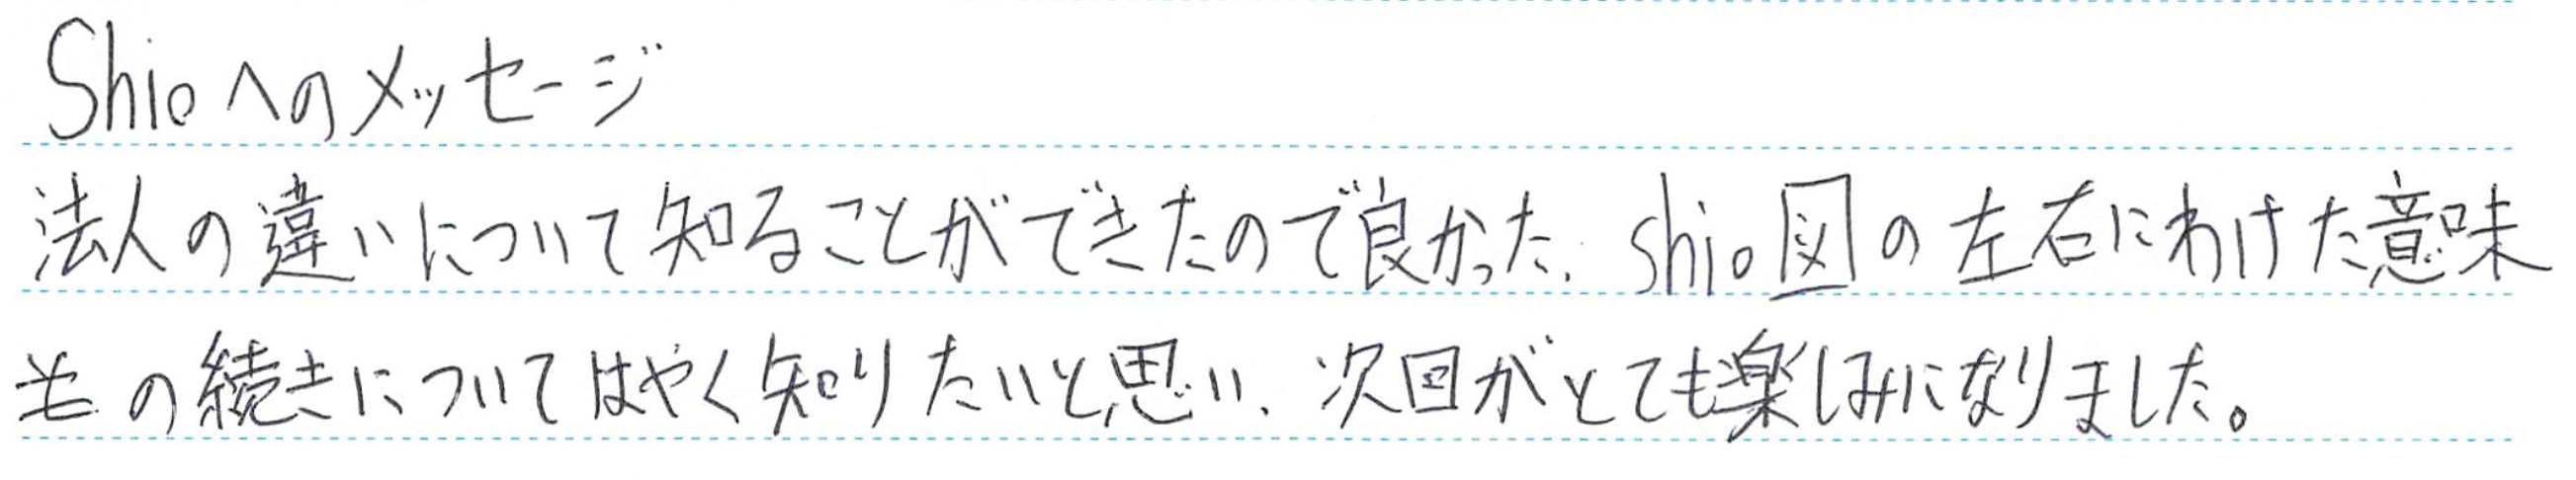 Shioへのメッセージ
法人の違いについて知ることができたので良かった. shio図の左右にわけた意味
その続きについてはやく知りたいと思い、次回がとても楽しみになりました。